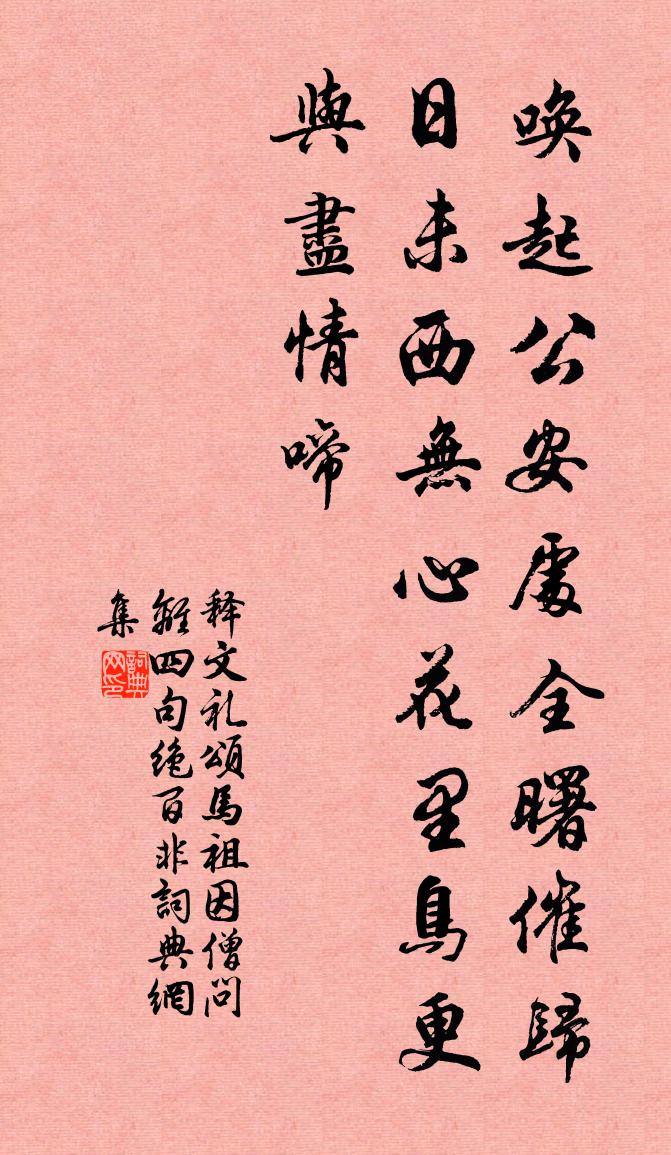 喚起公安處全曙催歸
日未西無心花里鳥更
與盡情啼
释文礼頌馬祖因僧問
離四句絶百非詞典網
集
詞典网印